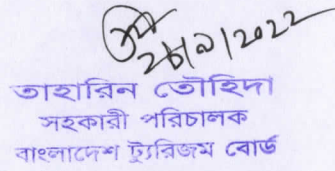 ২৮/৯/২০২২
তাহারিন তৌহিদা
সহকারী পরিচালক
বাংলাদেশ ট্যুরিজম বোর্ড